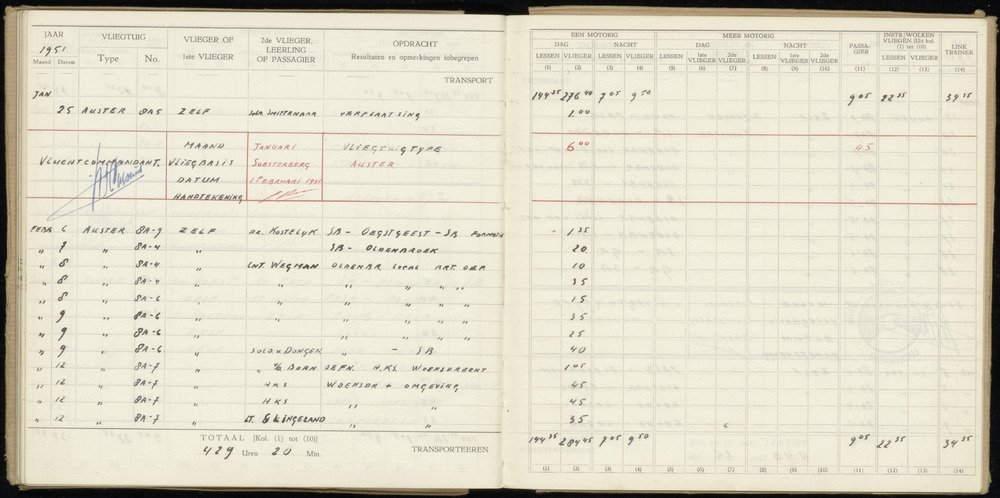 JAAR 1951 VLIEGTUIG VLIEGER OF 1ste VLIEGER 2de VLIEGER, LEERLING OF PASSAGIER OPDRACHT Resultaten en opmerkingen inbegrepen
Maand Datum Type No.
TRANSPORT
JAN
25 AUSTER 8A5 ZELF SOLD. SMITTENAAR VERPLAATSING
MAAND JANUARI VLIEGTUIGTYPE
VLUCHTCOMMANDANT. VLIEGBASIS SOESTERBERG AUSTER
DATUM 1 FEBRUARI 1951
HANDTEKENING
FEBR 6 AUSTER 8A-9 ZELF DR. KOSTELYK SB - OEGSTGEEST - SB FORMATIE
" 8A-4 " SB - OLDENBROEK
" 8 " 8A-4 " LNT. WEGMAN OLDENBR LOCAL ART. OEF
" 8 " 8A-4 " " " " "
" 8 " 8A-6 " " " " "
" 9 " 8A-6 " " " " "
" 9 " 8A-6 " " " " "
" 9 " 8A-6 " SOLD. v. DONGEN " - SB
" 12 " 8A-7 " BORN OEFN. H.KS. WOENSDRECHT
" 12 " 8A-7 " HKS WOENSDR + OMGEVING
" 12 " 8A-7 " HKS " "
" 12 " 8A-7 " LT. SLINGELAND " "
TOTAAL [Kol. (1) tot (10)]
429 Uren 20 Min. TRANSPORTEEREN
EEN MOTORIG MEER MOTORIG PASSAGIER INSTR./WOLKEN VLIEGEN [Uit kol. (1) tot (10)] LINK TRAINER
DAG NACHT DAG NACHT
LESSEN VLIEGER LESSEN VLIEGER LESSEN 1ste VLIEGER 2de VLIEGER LESSEN 1ste VLIEGER 2de VLIEGER LESSEN VLIEGER
(1) (2) (3) (4) (5) (6) (7) (8) (9) (10) (11) (12) (13) (14)
144 35 276 40 7 05 9 50 9 05 22 35 34 35
1.00
6 00 45
- 1 35
20
10
35
15
35
25
40
1 05
45
45
35
144 35 284 45 7 05 9 50 9 05 22 35 34 35
(1) (2) (3) (4) (5) (6) (7) (8) (9) (10) (11) (12) (13) (14)